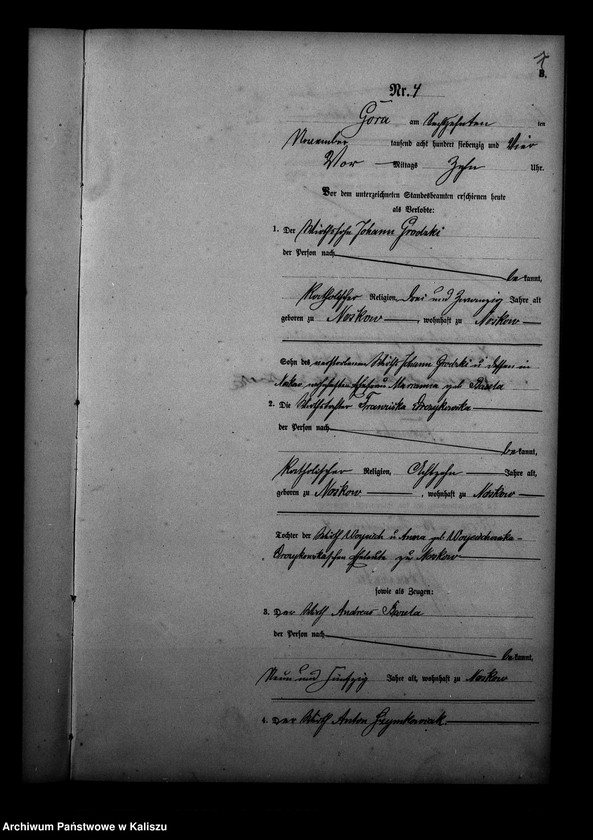 7
B.
Nr. 4
Góra am Sechszehnten ten
November tausend acht hundert siebenzig und Vier
Vor Mittags Zehn Uhr.
Vor dem unterzeichneten Standesbeamten erschienen heute
als Verlobte:
1. Der Wirthssohn Johann Grodzki
der Person nach
bekannt,
Katholischer Religion, Drei und Zwanzig Jahre alt
geboren zu Noskow, wohnhaft zu Noskow
Sohn des verstorbenen Wirth Johann Grodzki u dessen in
Noskow wohnhaften Ehefrau Marianna geb.
2. Die Wirthstochter Franziska
der Person nach
bekannt,
Katholischer Religion, Achtzehn Jahre alt,
geboren zu Noskow, wohnhaft zu Noskow
Tochter der Wirth u Anna geb.
Eheleute zu Noskow
sowie als Zeugen:
3. Der Wirth Andreas
der Person nach
bekannt,
Neun und Fünfzig Jahre alt, wohnhaft zu Noskow
4. Der Wirth Anton Szymkowiak
Archiwum Państwowe w Kaliszu